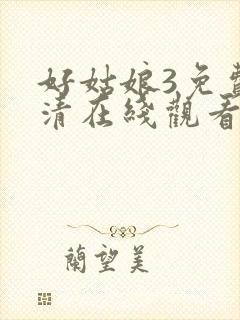 好姑娘3免費
清在綫觀看
蘭望美